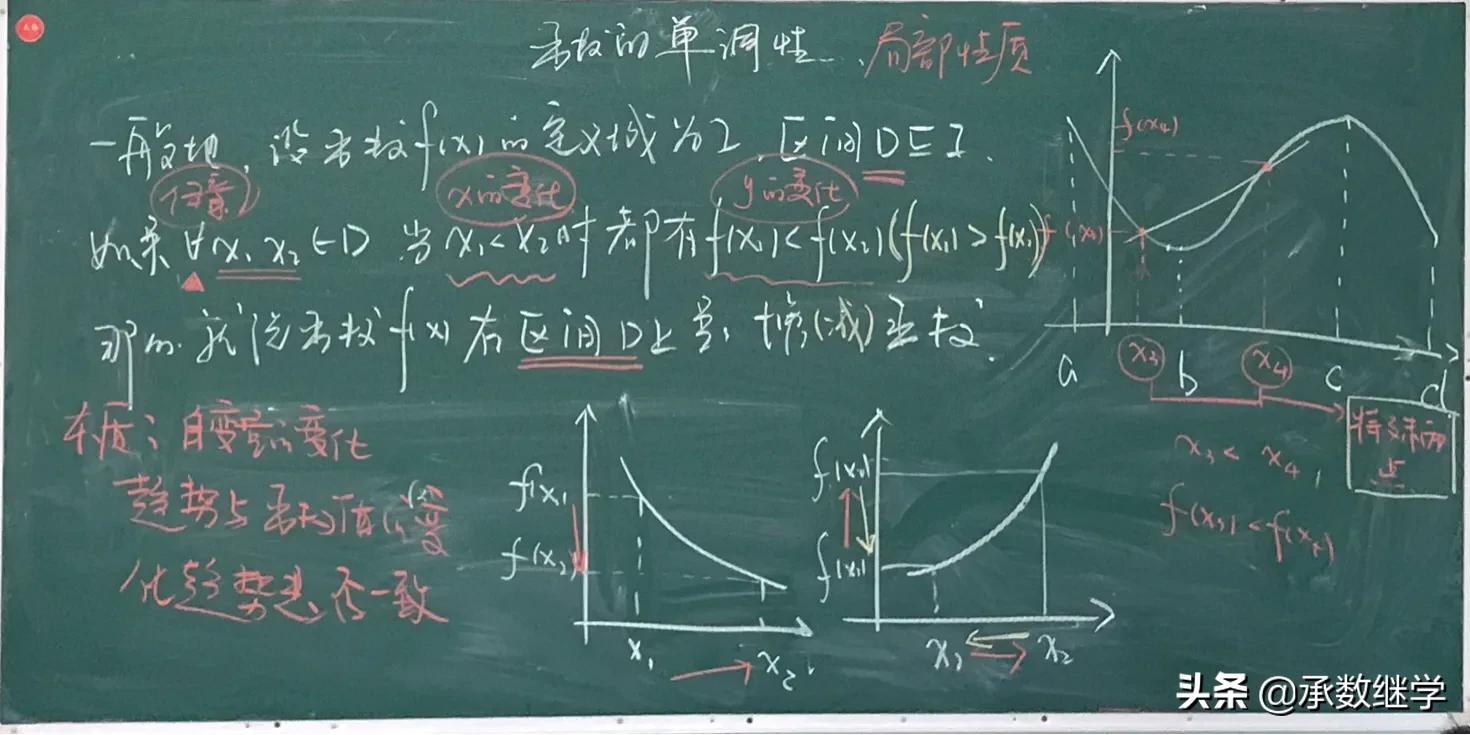 函数的单调性、局部性质
一般地,设函数f(x)的定义域为I,区间D⊆I.
任意
x的变化
y的变化
如果∀x₁,x₂∈D 当x₁<x₂时都有f(x₁)<f(x₂)(f(x₁)>f(x₂))
那么就说函数f(x)在区间D上是增(减)函数.
本质:自变量的变化
趋势与函数值的变
化趋势是否一致
f(x₄)
f(x₃)
a
x₃
b
x₄
c
d
特殊两
点
x₃<x₄,
f(x₃)<f(x₄)
f(x₁
f(x₂)
x₁
x₂
f(x₂)
f(x₁)
x₁
x₂
头条 @承数继学